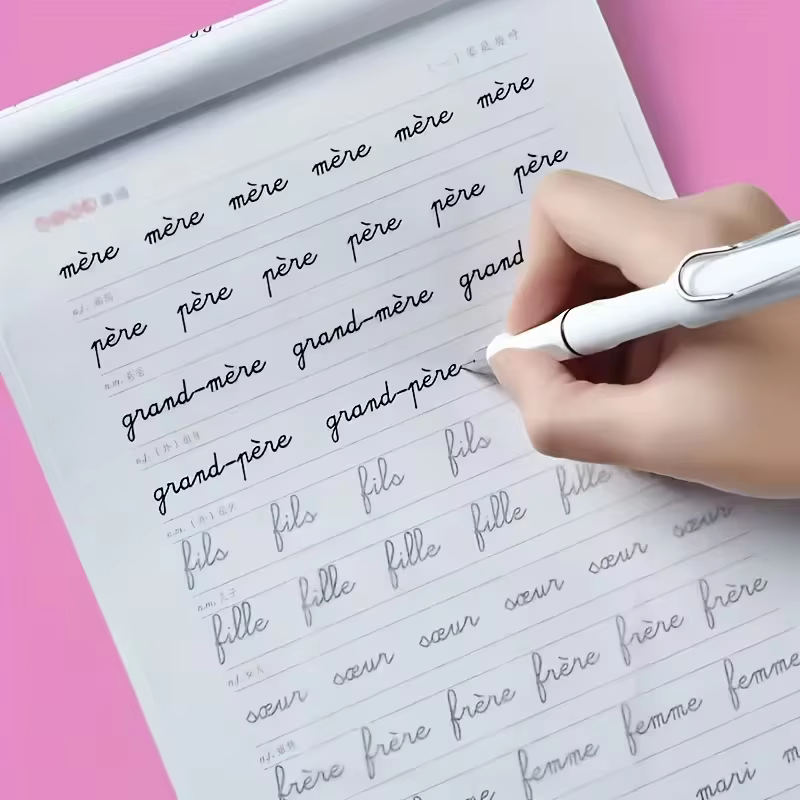 mère mère mère mère mère mère
père père père père père père
grand-mère grand-mère grand
grand-père grand-père
fils fils fils fils
fille fille fille fille fille
sœur sœur sœur sœur sœur sœur
frère frère frère frère frère frère
femme femme femme
mari